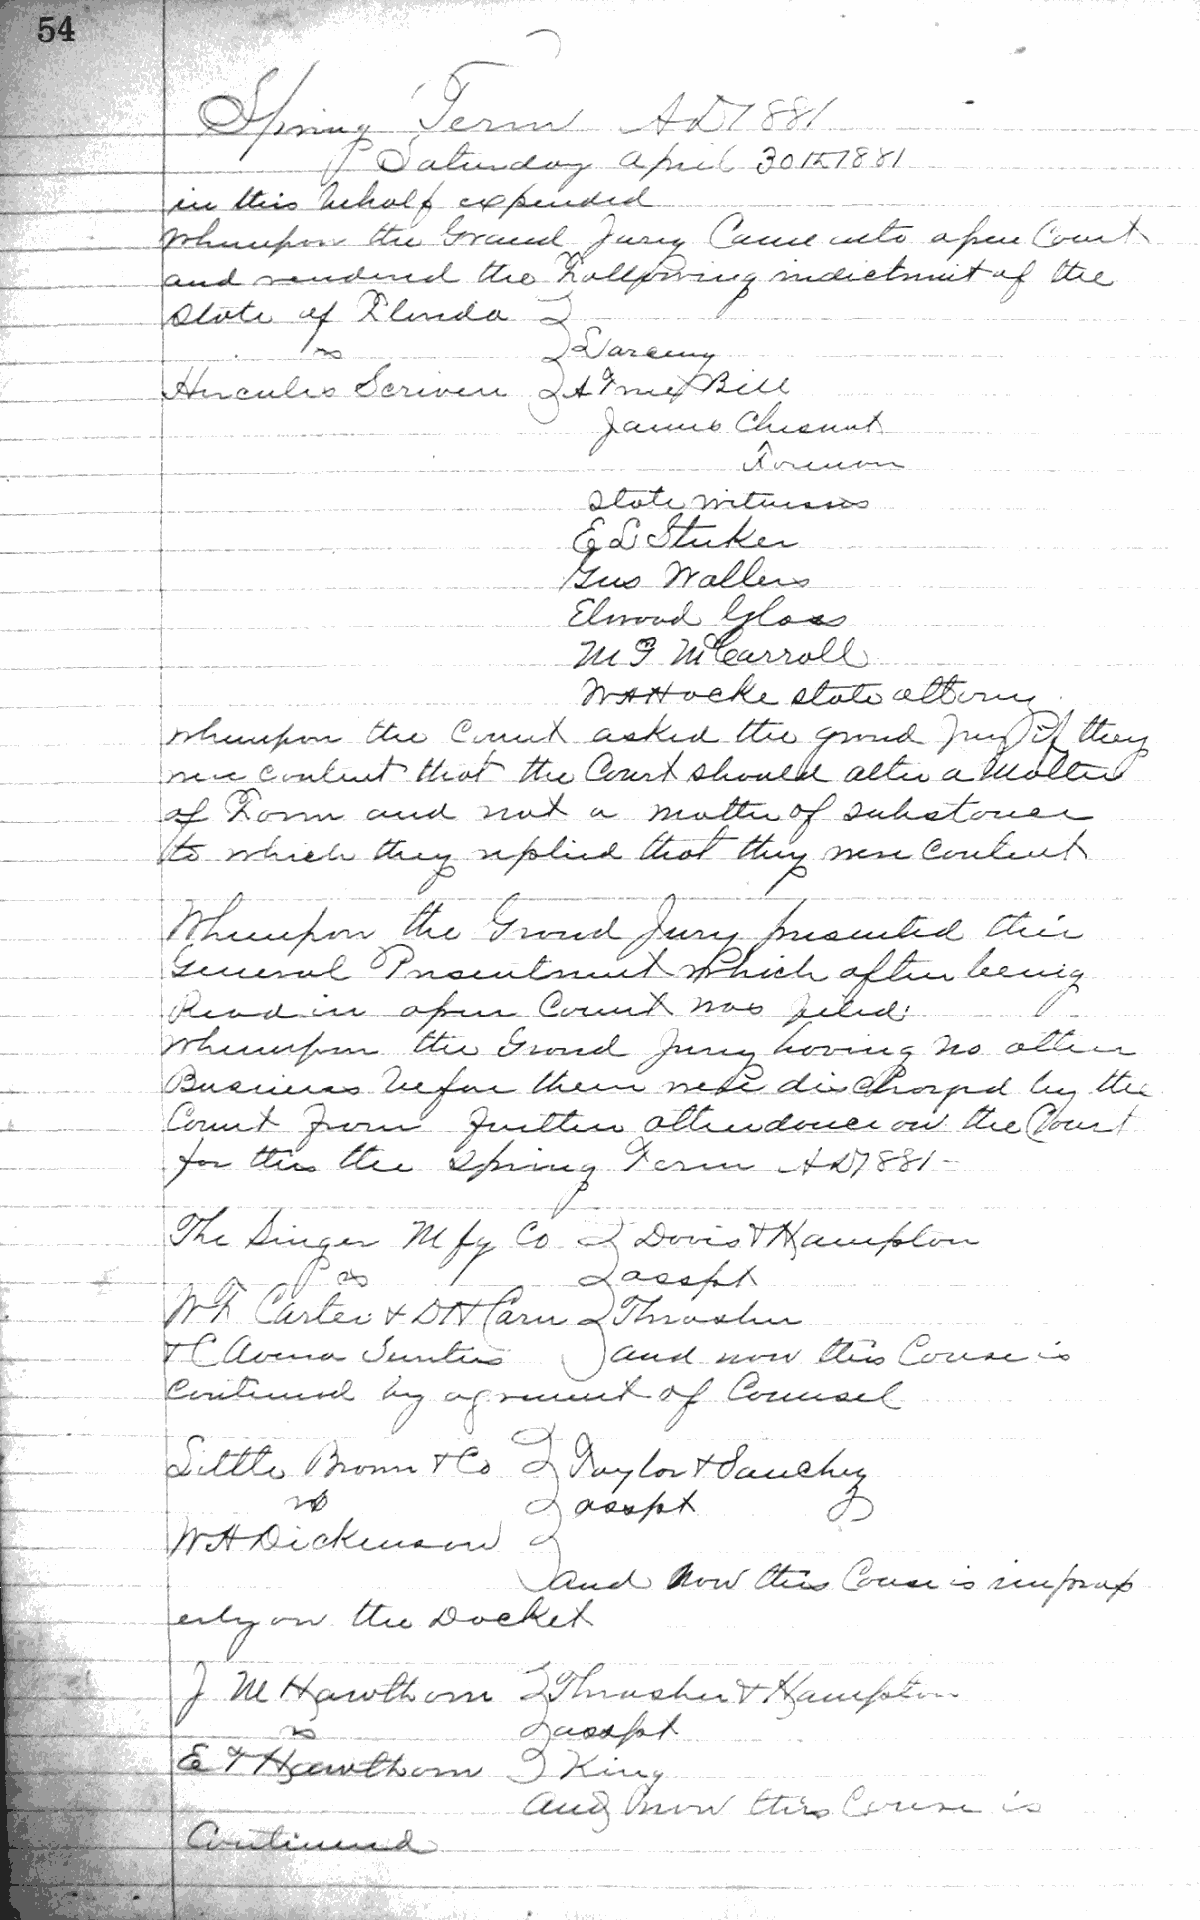 54
Spring Term AD 1881
Saturday April 30th 1881
in this behalf expended
Whereupon the Grand Jury Came into open Court
and rendered the Following indictment of the
State of Florida
vs
Larceny
Hercules Scriven A True Bill
James Chesnut
Foreman
State witnesses
E L Stuker
Gus Wallers
Elwood Glass
M F McCarroll
W A Hocke state attorny
whereupon the Court asked the grand Jury if they
were content that the Court should alter a Matter
of Form and not a matter of substance
to which they replied that they were Content
Whereupon the Grand Jury presented their
General Presentment which after being
Read in open Court was filed:
Whereupon the Grand Jury having no other
Business before them were discharged by the
Court from further attendance on the Court
for this the Spring Term AD 1881 -
The Singer Mfg Co Davis & Hampton
vs asspt
W F Carter & D H Carn Thrasher
& C Suritis and now this Cause is
Continued by agreement of Counsel
Little Brown & Co Taylor & Sanchez
vs asspt
W H Dickenson
and Now this Cause is improp
erly on the Docket
J M Hawthorn Thrasher & Hampton
vs asspt
E T Hawthorn King
And now this Cause is
Continued